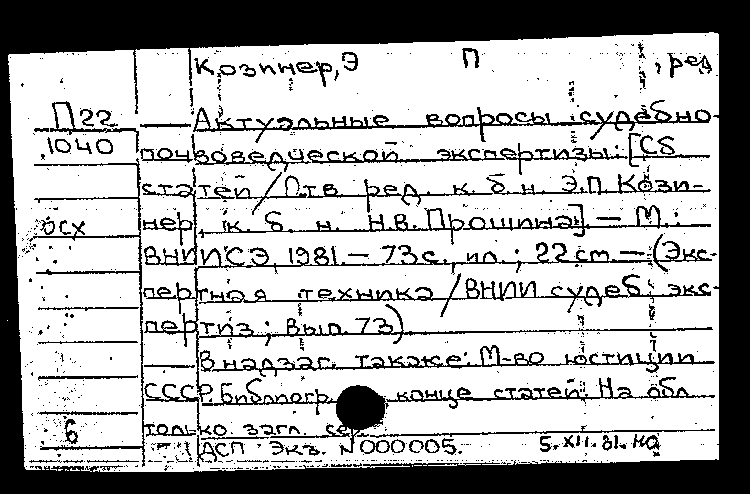 Козинер, Э П , ред
П22 — Актуальные вопросы судебно-
1040 почвоведческой экспертизы: [Сб
статей / Отв ред. к. б. н. Э.П. Кози-
осх нер, к. б. н. Н.В. Прошина]. — М.:
ВНИИСЭ, 1981. — 73 с., ил.; 22 см — (Экс-
пертная техника / ВНИИ судеб. экс-
пертиз; Вып. 73).
В надзаг. также: М-во юстиции
СССР. Библиогр. конце статей. На обл
6 только загл. сер.
АСП Экз. N000005. 5.XII.81.